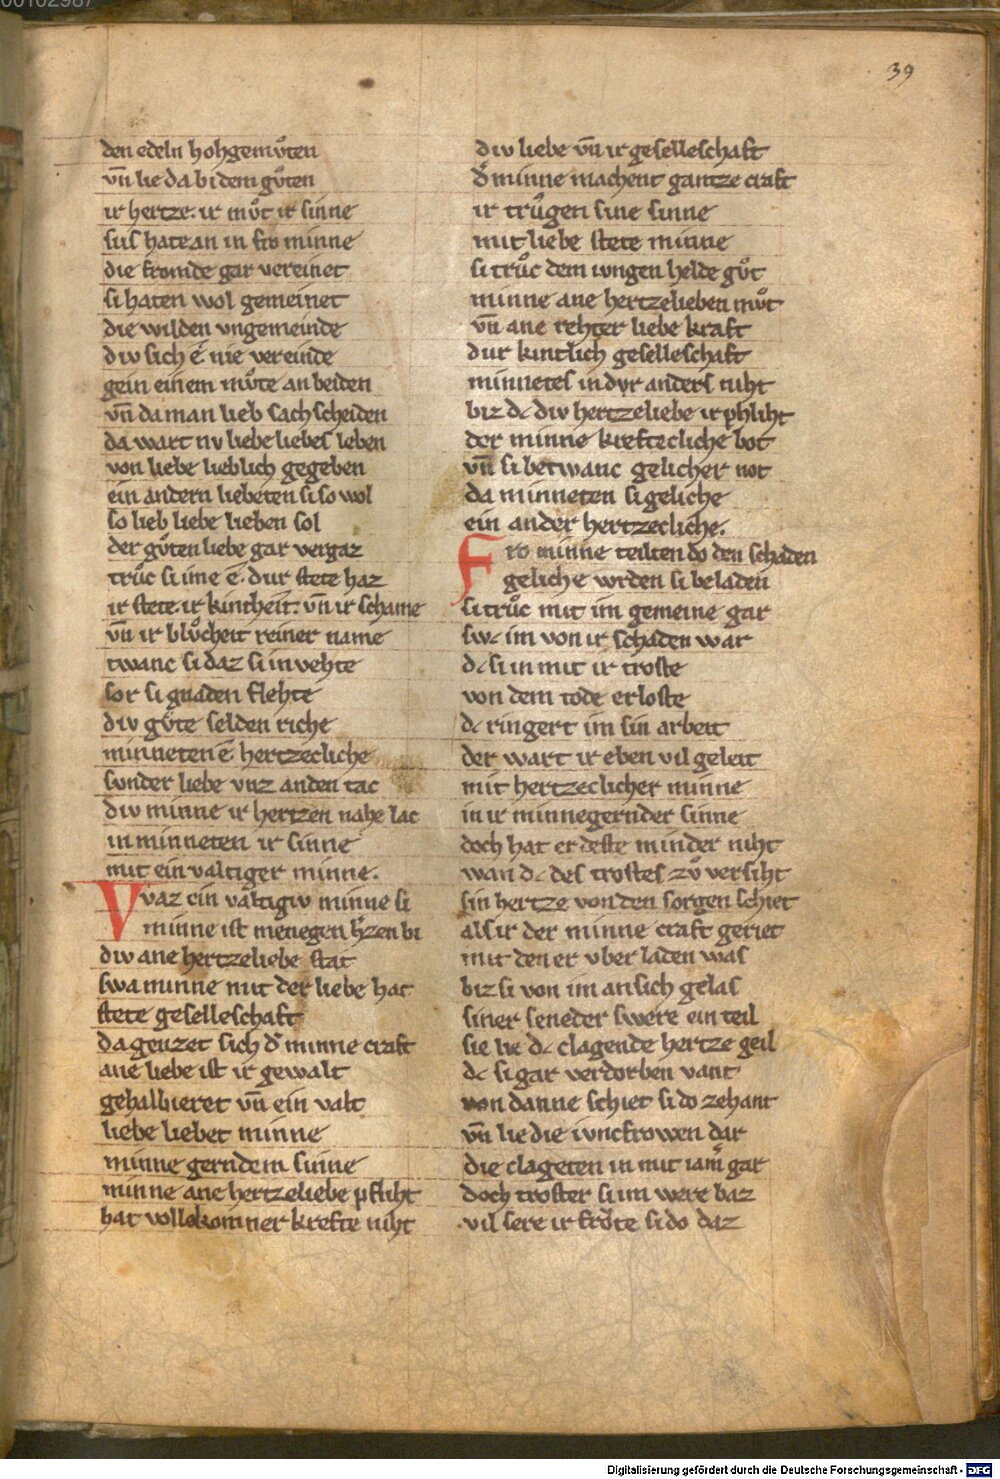 00102987
39
den edeln hohgemůten
vn̄ lie da bi dem gůten
ir hertze. ir můt ir sinne
sus hatean in fro minne
die fromde gar vereinet
si haten wol gemeinet
die wilden vngemeinde
div sich ê nie vereinde
gein einem můte an beiden
vn̄ da man lieb sach scheiden
da wart nv liebe liebes leben
von liebe lieblich gegeben
ein andern liebeten si so wol
so lieb liebe lieben sol
der gůten liebe gar vergaz
trůc si ime ê. dur stete haz
ir stete. ir kintheit. vn̄ ir schame
vn̄ ir blůcheit reiner name
twanc si daz si in vehte
sor si gnaden flehte
div gůte selden riche
minneten ê hertzecliche
sunder liebe vnz an den tac
div minne ir hertzen nahe lac
in minneten ir sinne
mit ein valtiger minne.
Vvaz ein vaͤltigiv minne si
minne ist menegen h̾zen bi
div ane hertzeliebe stat
swa minne mit der liebe hat
stete geselleschaft
da genzet sich d̾ minne craft
ane liebe ist ir gewalt
gehalbieret vn̄ ein valt
liebe liebet minne
minne gerndem sinne
minne ane hertzeliebe pfliht
hat vollekomner krefte niht
div liebe vn̄ ir geselleschaft
d̾ minne machent gantze craft
ir trůgen sine sinne
mit liebe stete minne
si trůc dem iungen helde gůt
minne ane hertzelieben můt
vn̄ ane rehter liebe kraft
dur kintlich geselleschaft
minnetes in dvr anders niht
biz dc div hertzeliebe ir phliht
der minne kreftecliche bot
vn̄ si betwanc gelicher not
da minneten si geliche
ein ander hertzecliche.
Fro minne teilten do den schaden
geliche wrden si beladen
si trůc mit im gemeine gar
swc im von ir schaden war
dc si in mit ir troste
von dem tode erloste
dc ringert im sin arbeit
der wart ir eben vil geleit
mit hertzeclicher minne
in ir minnegernder sinne
doch hat er deste minder niht
wan dc des trostes zů versiht
sin hertze von den sorgen schiet
als ir der minne craft geriet
mit den er vber laden was
biz si von im an sich gelas
siner seneder swere ein teil
sie lie dc clagende hertze geil
dc si gar verdorben vant
von danne schiet si do zehant
vn̄ lie die iuncfrowen dar
die clageten in mit iam̾ gar
doch troster si im were baz
vil sere ir froͤte si do daz
Digitalisierung gefördert durch die Deutsche Forschungsgemeinschaft - DFG